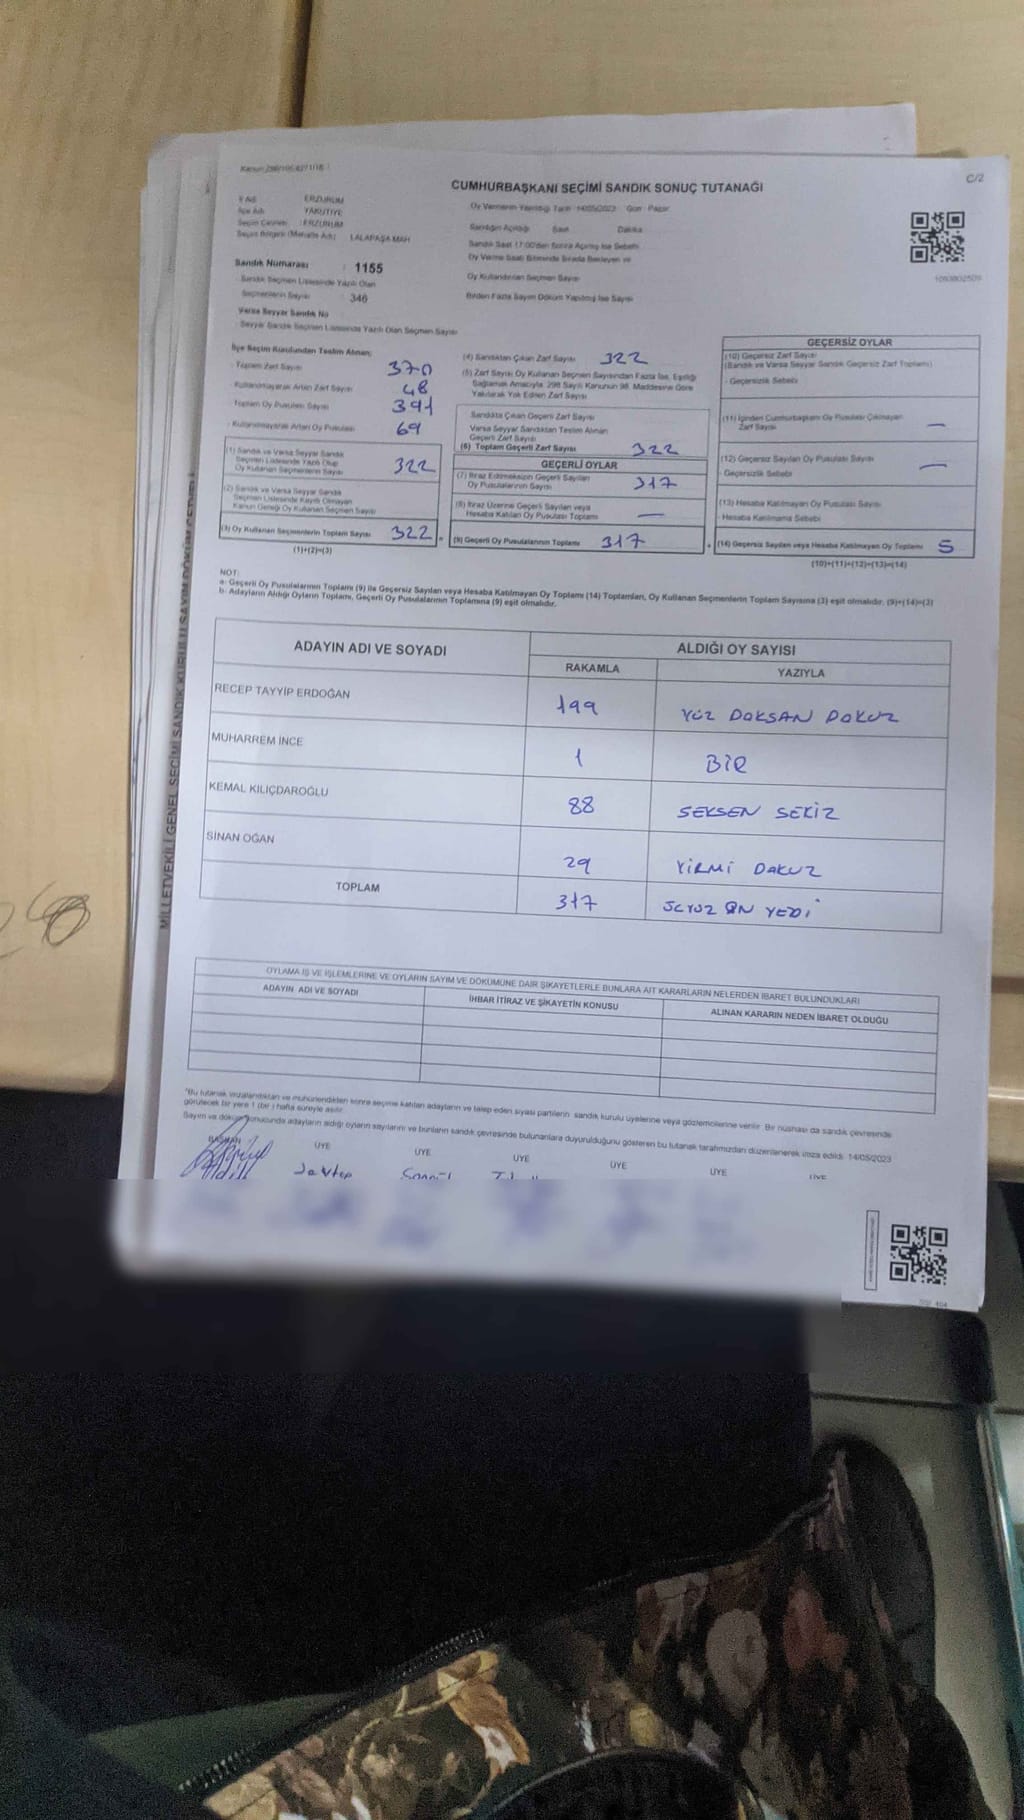 C/2
CUMHURBAŞKANI SEÇİMİ SANDIK SONUÇ TUTANAĞI
İl Adı ERZURUM
İlçe Adı YAKUTİYE
Seçim Çevresi : ERZURUM
Seçim Bölgesi (Mahalle Adı) LALAPAŞA MAH
Sandık Numarası : 1155
Sandık Seçmen Listesinde Yazılı Olan
Seçmenlerin Sayısı : 346
Varsa Seyyar Sandık No
Seyyar Sandık Seçmen Listesinde Yazılı Olan Seçmen Sayısı
Oy Vermenin Yapıldığı Tarih 14/05/2023 Gün : Pazar
Sandığın Açıldığı Saat Dakika
Sandık Saat 17:00'den Sonra Açılmış İse Sebebi
Oy Verme Saati Bitiminde Sırada Bekleyen ve
Oy Kullandırılan Seçmen Sayısı
Birden Fazla Sayım Döküm Yapılmış İse Sayısı
İlçe Seçim Kurulundan Teslim Alınan;
- Toplam Zarf Sayısı 370
- Kullanılmayarak Artan Zarf Sayısı 48
- Toplam Oy Pusulası Sayısı 391
- Kullanılmayarak Artan Oy Pusulası 69
(1) Sandık ve Varsa Seyyar Sandık
Seçmen Listesinde Yazılı Olup
Oy Kullanan Seçmenlerin Sayısı 322
(2) Sandık ve Varsa Seyyar Sandık
Seçmen Listesinde Kayıtlı Olmayan
Kanun Gereği Oy Kullanan Seçmen Sayısı
(3) Oy Kullanan Seçmenlerin Toplam Sayısı 322
(1)+(2)=(3)
(4) Sandıktan Çıkan Zarf Sayısı 322
(5) Zarf Sayısı Oy Kullanan Seçmen Sayısından Fazla İse, Eşitliği
Sağlamak Amacıyla 298 Sayılı Kanunun 98. Maddesine Göre
Yakılarak Yok Edilen Zarf Sayısı
Sandıkta Çıkan Geçerli Zarf Sayısı
Varsa Seyyar Sandıktan Teslim Alınan
Geçerli Zarf Sayısı
(6) Toplam Geçerli Zarf Sayısı 322
GEÇERLİ OYLAR
(7) İtiraz Edilmeksizin Geçerli Sayılan
Oy Pusulalarının Sayısı 317
(8) İtiraz Üzerine Geçerli Sayılan veya
Hesaba Katılan Oy Pusulası Toplamı —
(9) Geçerli Oy Pusulalarının Toplamı 317
GEÇERSİZ OYLAR
(10) Geçersiz Zarf Sayısı
(Sandık ve Varsa Seyyar Sandık Geçersiz Zarf Toplamı)
- Geçersizlik Sebebi
(11) İçinden Cumhurbaşkanı Oy Pusulası Çıkmayan
Zarf Sayısı —
(12) Geçersiz Sayılan Oy Pusulası Sayısı —
- Geçersizlik Sebebi
(13) Hesaba Katılmayan Oy Pusulası Sayısı
- Hesaba Katılmama Sebebi
(14) Geçersiz Sayılan veya Hesaba Katılmayan Oy Toplamı 5
(10)+(11)+(12)+(13)=(14)
NOT:
a- Geçerli Oy Pusulalarının Toplamı (9) ile Geçersiz Sayılan veya Hesaba Katılmayan Oy Toplamı (14) Toplamları, Oy Kullanan Seçmenlerin Toplam Sayısına (3) eşit olmalıdır. (9)+(14)=(3)
b- Adayların Aldığı Oyların Toplamı, Geçerli Oy Pusulalarının Toplamına (9) eşit olmalıdır.
ADAYIN ADI VE SOYADI ALDIĞI OY SAYISI
RAKAMLA YAZIYLA
RECEP TAYYİP ERDOĞAN 199 YÜZ DOKSAN DOKUZ
MUHARREM İNCE 1 BİR
KEMAL KILIÇDAROĞLU 88 SEKSEN SEKİZ
SİNAN OĞAN 29 YİRMİ DAKUZ
TOPLAM 317 ÜÇYÜZ ON YEDİ
OYLAMA İŞ VE İŞLEMLERİNE VE OYLARIN SAYIM VE DÖKÜMÜNE DAİR ŞİKAYETLERLE BUNLARA AİT KARARLARIN NELERDEN İBARET BULUNDUKLARI
ADAYIN ADI VE SOYADI İHBAR İTİRAZ VE ŞİKAYETİN KONUSU ALINAN KARARIN NEDEN İBARET OLDUĞU
*Bu tutanak imzalandıktan ve mühürlendikten sonra seçime katılan adayların ve talep eden siyasi partilerin sandık kurulu üyelerine veya gözlemcilerine verilir. Bir nüshası da sandık çevresinde
görülecek bir yere 1 (bir) hafta süreyle asılır.
Sayım ve döküm sonucunda adayların aldığı oyların sayılarını ve bunların sandık çevresinde bulunanlara duyurulduğunu gösteren bu tutanak tarafımızdan düzenlenerek imza edildi. 14/05/2023
BAŞKAN ÜYE ÜYE ÜYE ÜYE ÜYE ÜYE